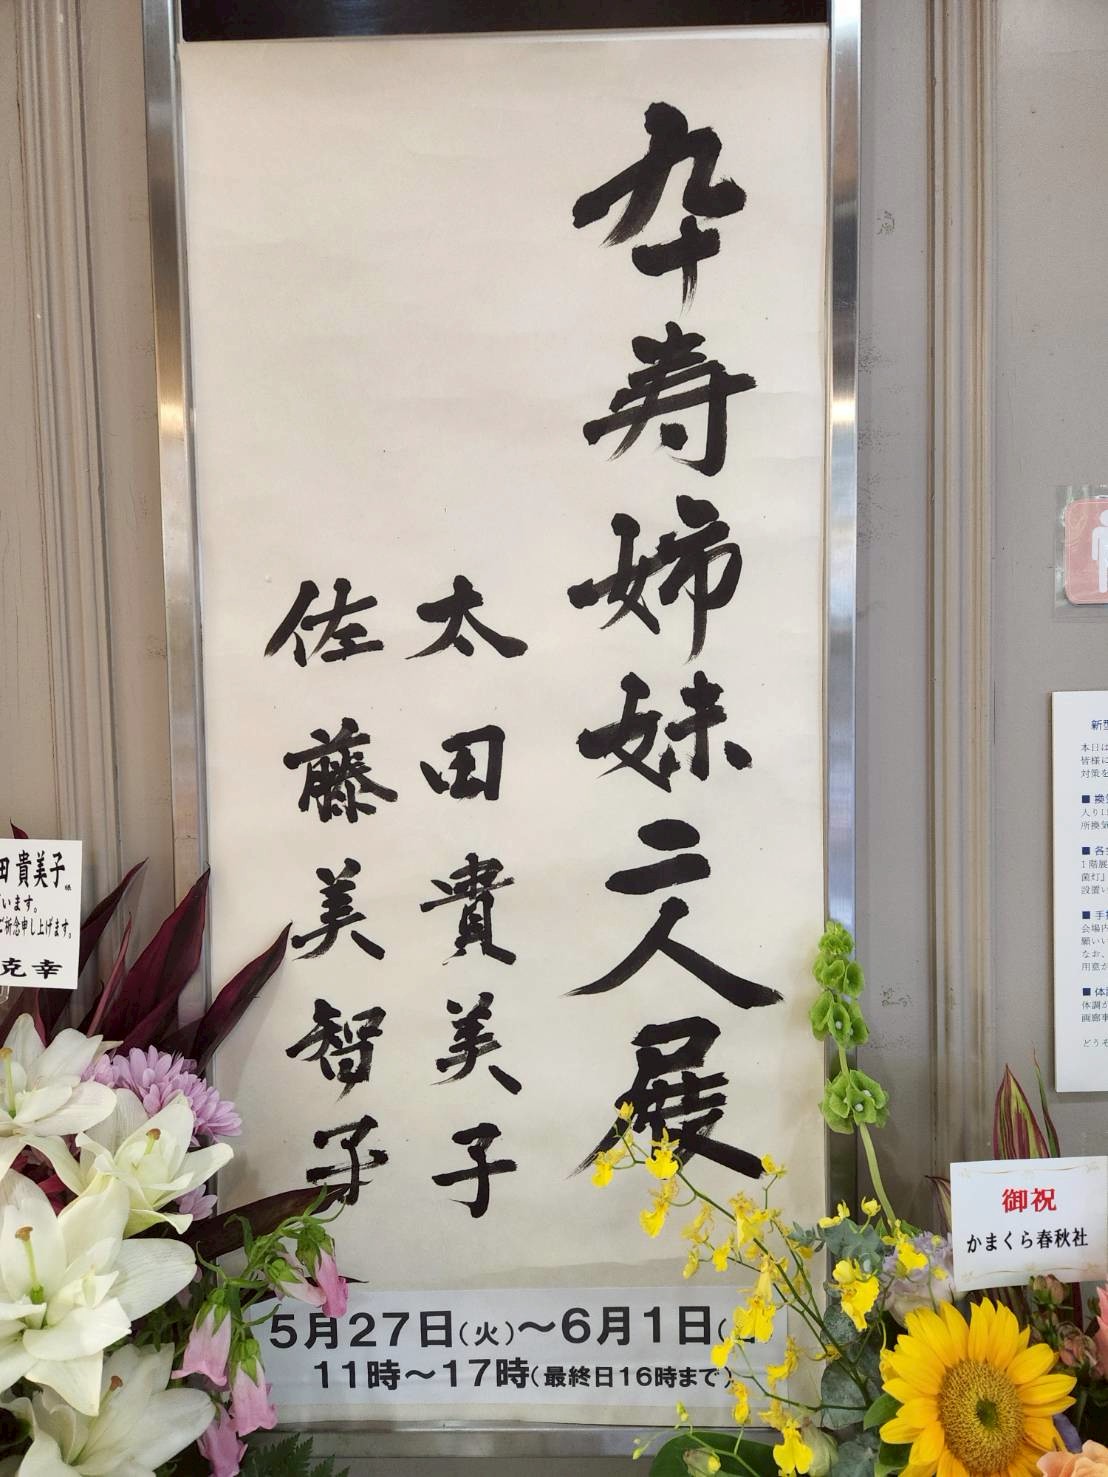 卆寿姉妹二人展
太田貴美子
佐藤美智子
5月27日(火)～6月1日(
11時～17時(最終日16時まで)
田 貴美子 様
います。
ご祈念申し上げます。
克幸
御祝
かまくら春秋社
新型
本日は
皆様に
対策を
■ 換気
入り口
所換気
■ 各
1階展
菌灯』
設置い
■ 手指
会場内
願いい
なお、
用意が
■ 体調
体調が
画廊車
どうぞ